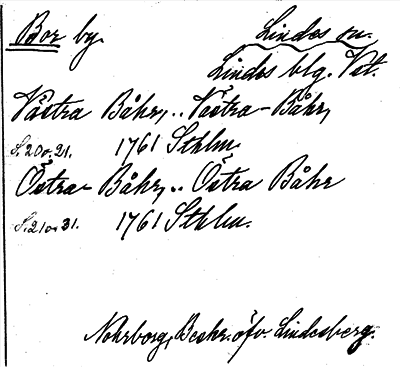 Bor by. Lindes sn.
Lindes blg. Vst.
Västra Båhr, .. Västra-Båhr,
S. 20 o. 21. 1761 Sthlm.
Östra- Båhr, .. Östra Båhr
S. 21 o. 31. 1761 Sthlm.
Nohrborg, Beskr. öfv. Lindesberg.